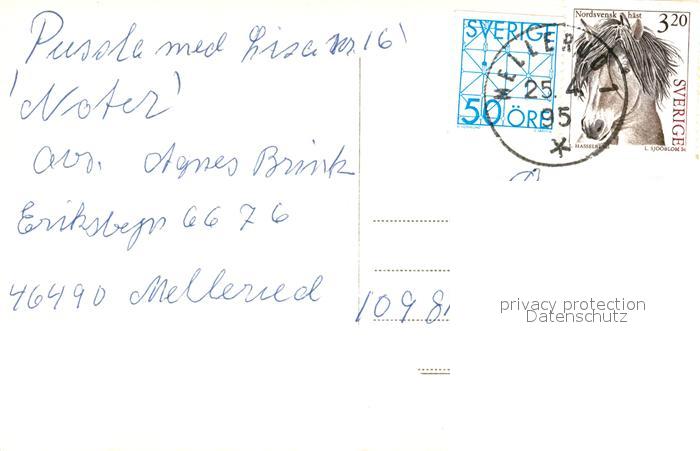 Pussla med Lisa nr. 16!
'Noter'
avs. Agnes Brink
Eriksbyn 6676
46490 Mellerud
1098
SVERIGE
50 ÖRE
Nordsvensk häst
3.20
SVERIGE
HASSELBERG L. SJÖÖBLOM SC
MELLERUD 1
25.4
95
privacy protection
Datenschutz